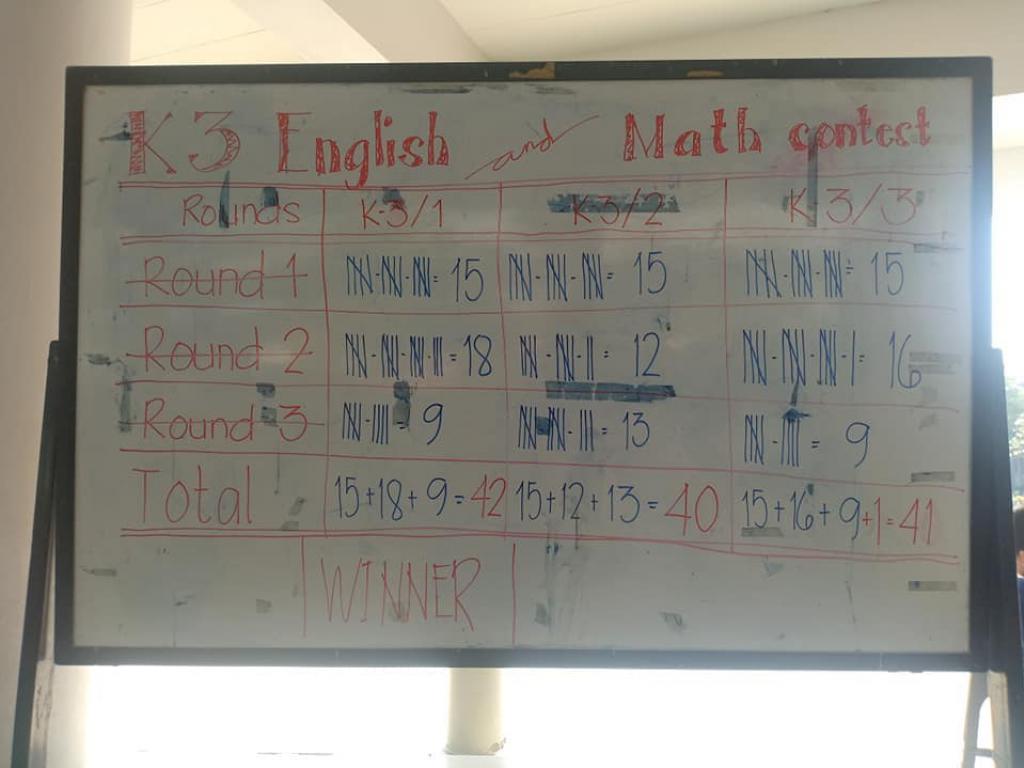 K3 English and Math contest
Rounds K-3/1 K-3/2 K 3/3
Round 1 = 15 = 15 = 15
Round 2 = 18 = 12 = 16
Round 3 = 9 = 13 = 9
Total 15+18+9=42 15+12+13=40 15+16+9+1=41
WINNER